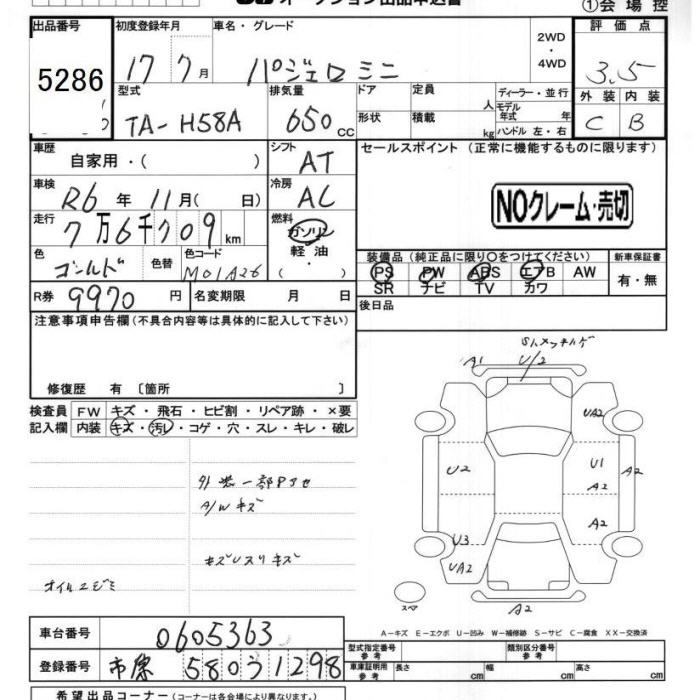 オークション出品申込書 ①会場控
出品番号 初度登録年月 車名・グレード 2WD・4WD 評価点
5286 17 7月 パジェロ ミニ 3.5
型式 排気量 ドア 定員 人 ディーラー・並行 外装 内装
TA-H58A 650 cc 形状 積載 kg モデル年式 年 ハンドル 左・右 C B
車歴 自家用・( ) シフト AT セールスポイント (正常に機能するものに限ります)
車検 R6年 11月( 日) 冷房 AC NOクレーム・売切
走行 7万6千709km 燃料 ガソリン 軽油
色 ゴールド 色替 色コード M01A26 装備品 (純正品に限り○をつけてください) 新車保証書
PS PW ABS エアB AW 有・無
SR ナビ TV カワ
R券 9970円 名変期限 月 日 後日品
注意事項申告欄(不具合内容等は具体的に記入して下さい)
修復歴 有 〔箇所 〕
検査員 FW キズ・飛石・ヒビ割・リペア跡・×要
記入欄 内装 キズ・汚レ・コゲ・穴・スレ・キレ・破レ
A1 U/2
UA2
U2 U1 A2
A2
A2
U3
UA2
スペア A2
A/W キズ
A-キズ E-エクボ U-凹み W-補修跡 S-サビ C-腐食 XX-交換済
車台番号 0605363 型式指定番号 参考 類別区分番号 参考
登録番号 市原 580 う 1298 車庫証明用 参考 長さ cm 幅 cm 高さ cm
希望出品コーナー(コーナーは各会場により異なります。)